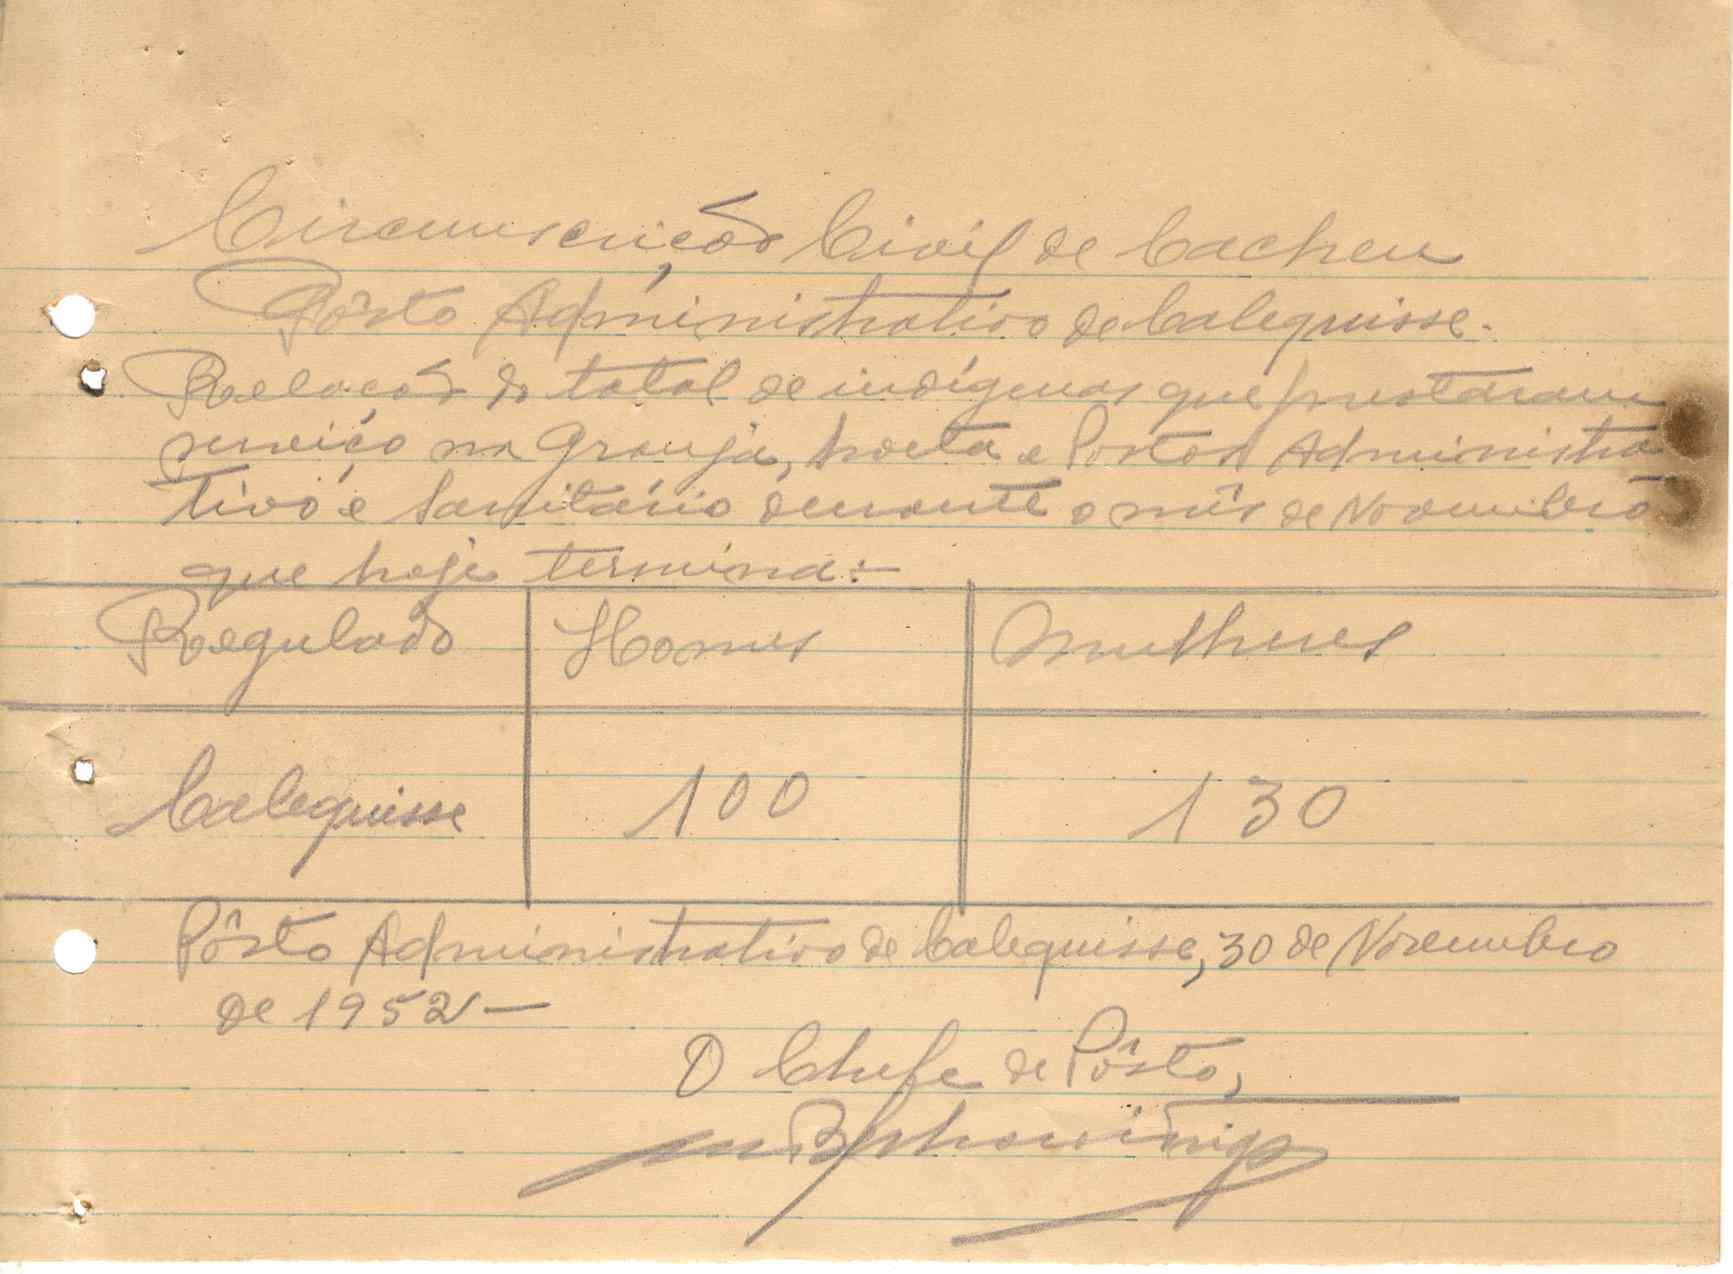 Circunscrição Civil de Cacheu
Pôsto Administrativo de Calequisse.
Relação do total de indígenas que prestaram
serviço na Granja, horta e Postos Administra
tivo e Sanitário durante o mês de Novembro
que hoje termina:-
Regulado Homes Mulheres
Calequisse 100 130
Pôsto Administrativo de Calequisse, 30 de Novembro
de 1952-
O Chefe de Pôsto,